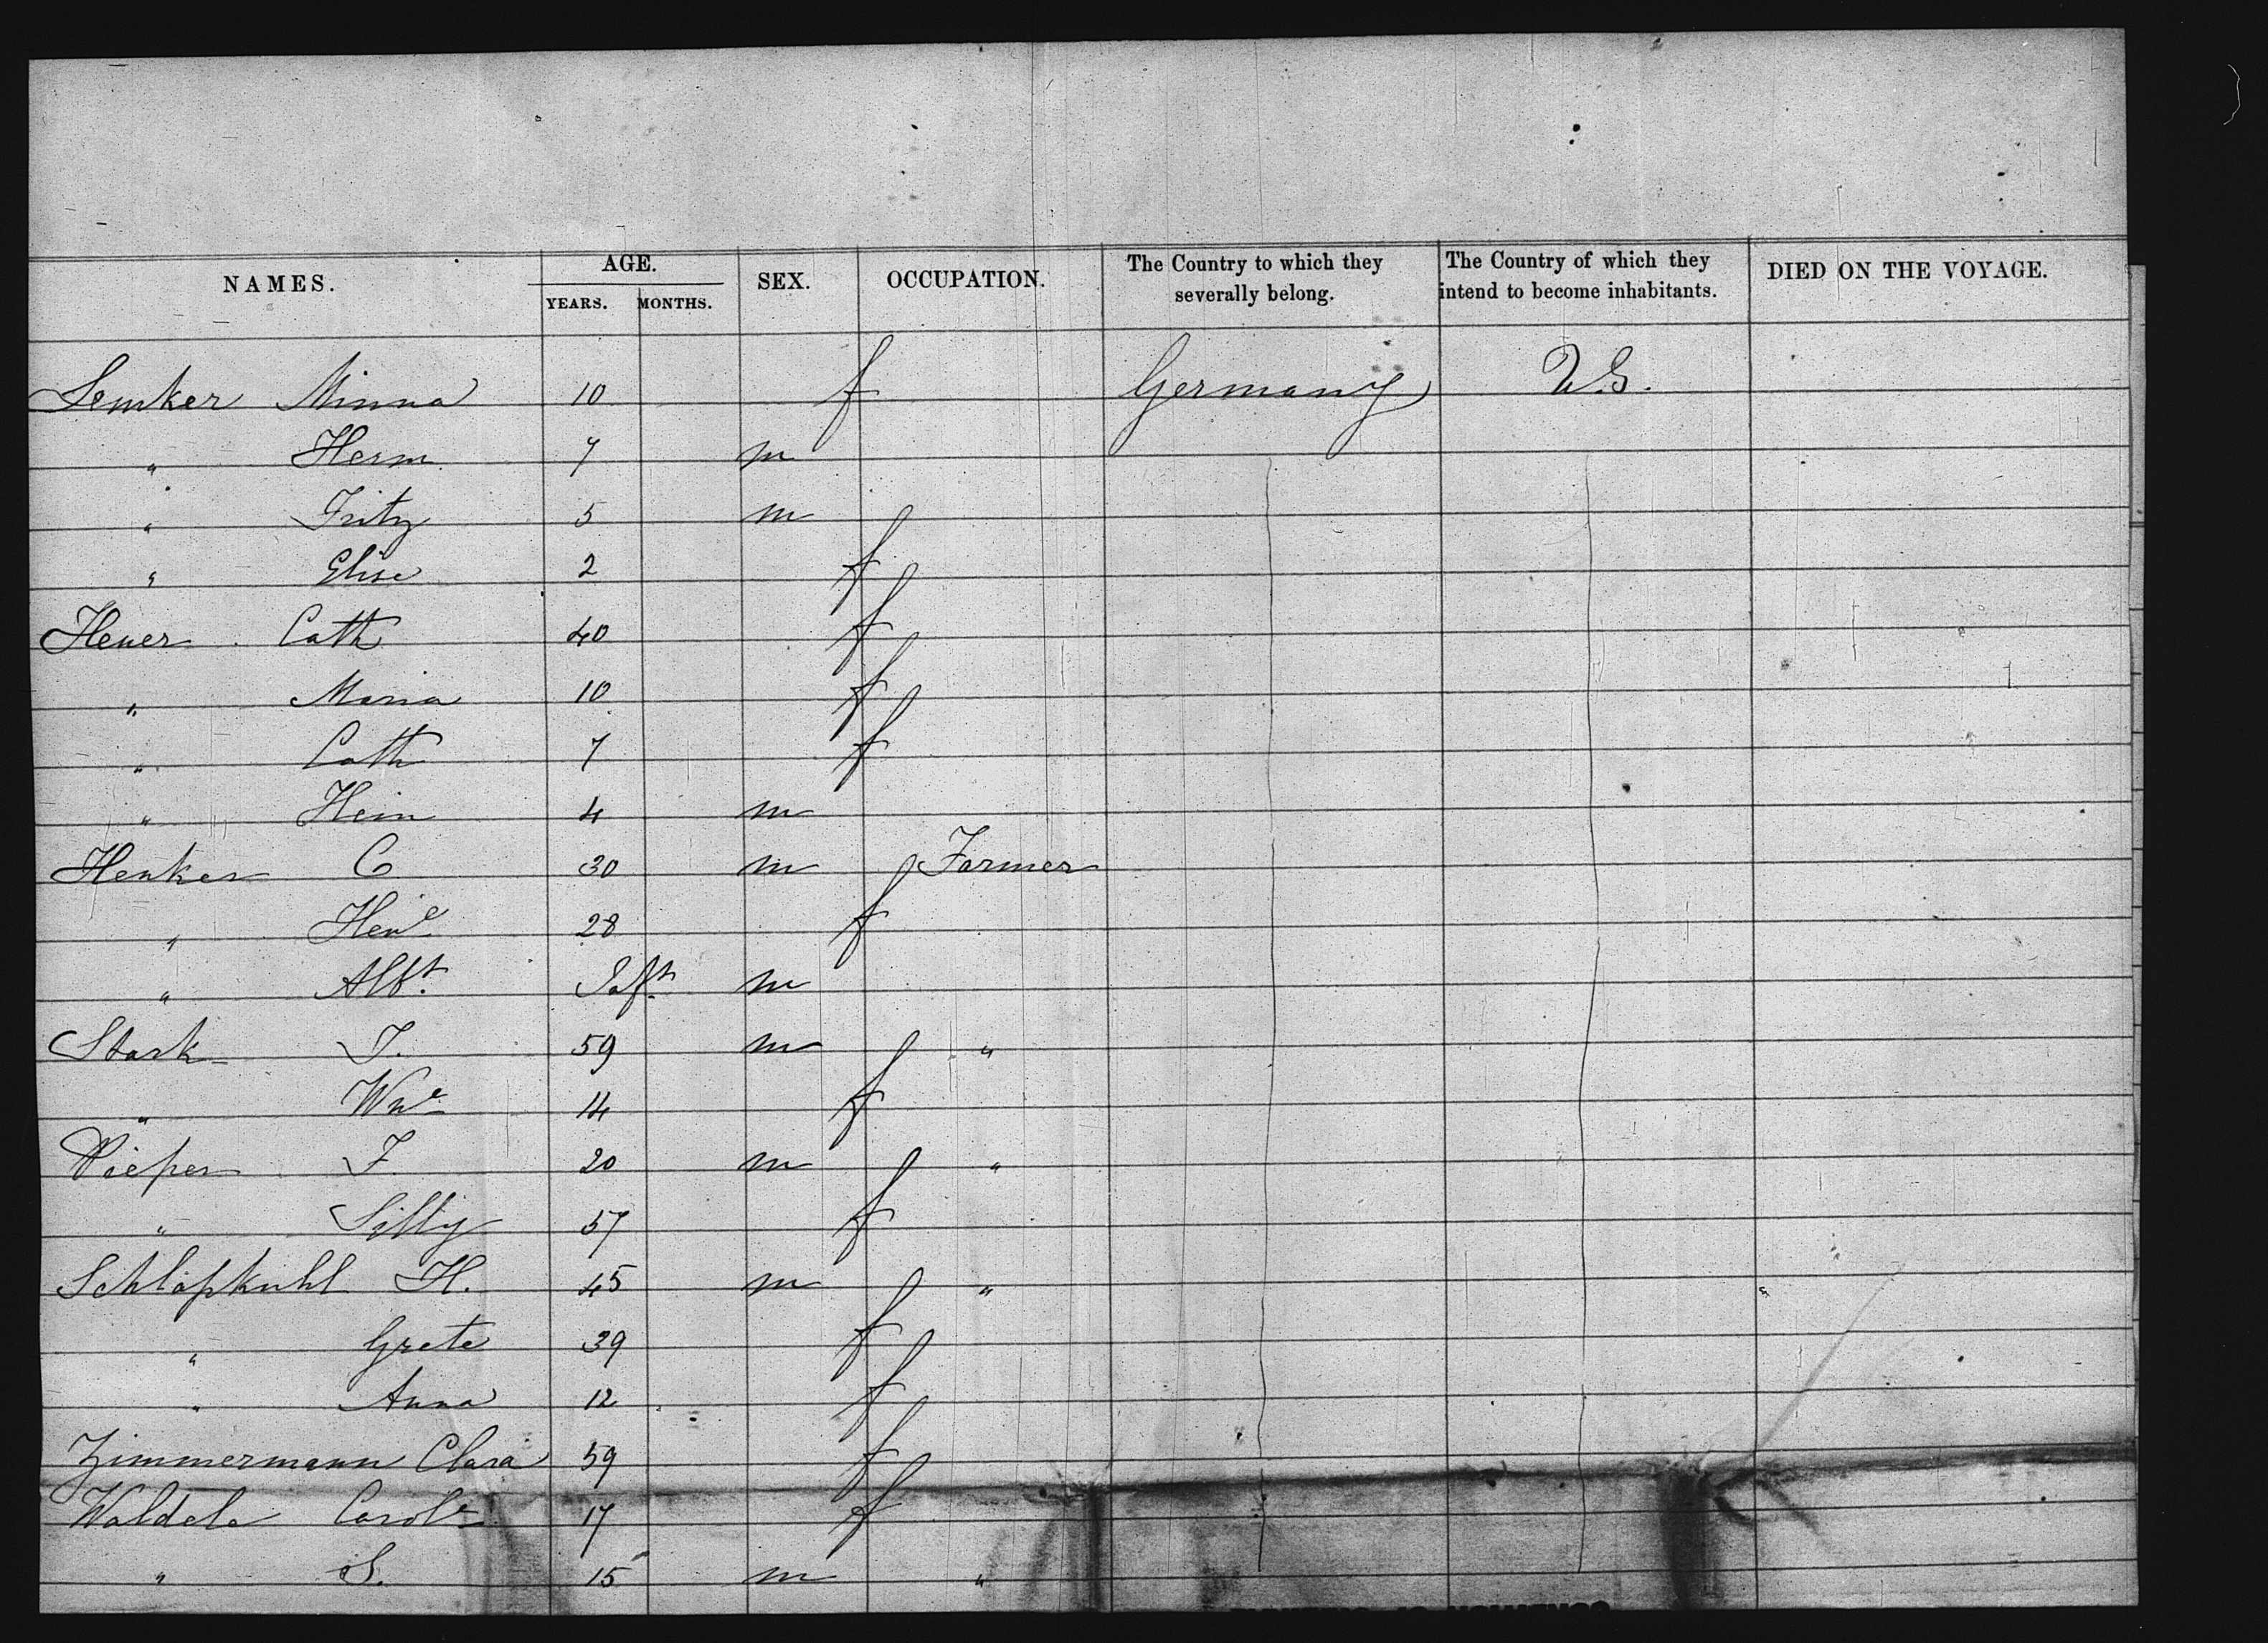 NAMES. AGE. YEARS. MONTHS. SEX. OCCUPATION. The Country to which they severally belong. The Country of which they intend to become inhabitants. DIED ON THE VOYAGE.
Lemker Minna 10 f Germany U.S.
" Herm. 7 m
" Fritz 5 m
" Elise 2 f
Heuer Cath 40 f
" Maria 10 f
" Cath 7 f
" Hein 4 m
Henker C 30 m Farmer
" Hen^e 28 f
" Alb^t. Inf^t. m
Stark J. 59 m "
" Wm^e 14 f
Pieper F. 20 m "
" Silly 57 f
Schlapkuhl H. 45 m "
" Grete 39 f
" Anna 12 f
Zimmermann Clara 59 f
Waldele Carol^e 17 f
" S. 15 m "